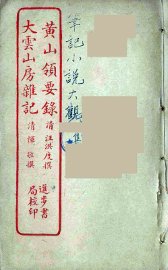 筆記小說大觀
黃山領要錄 清 汪洪度撰
大雲山房雜記 清 惲敬撰
進步書
局校印